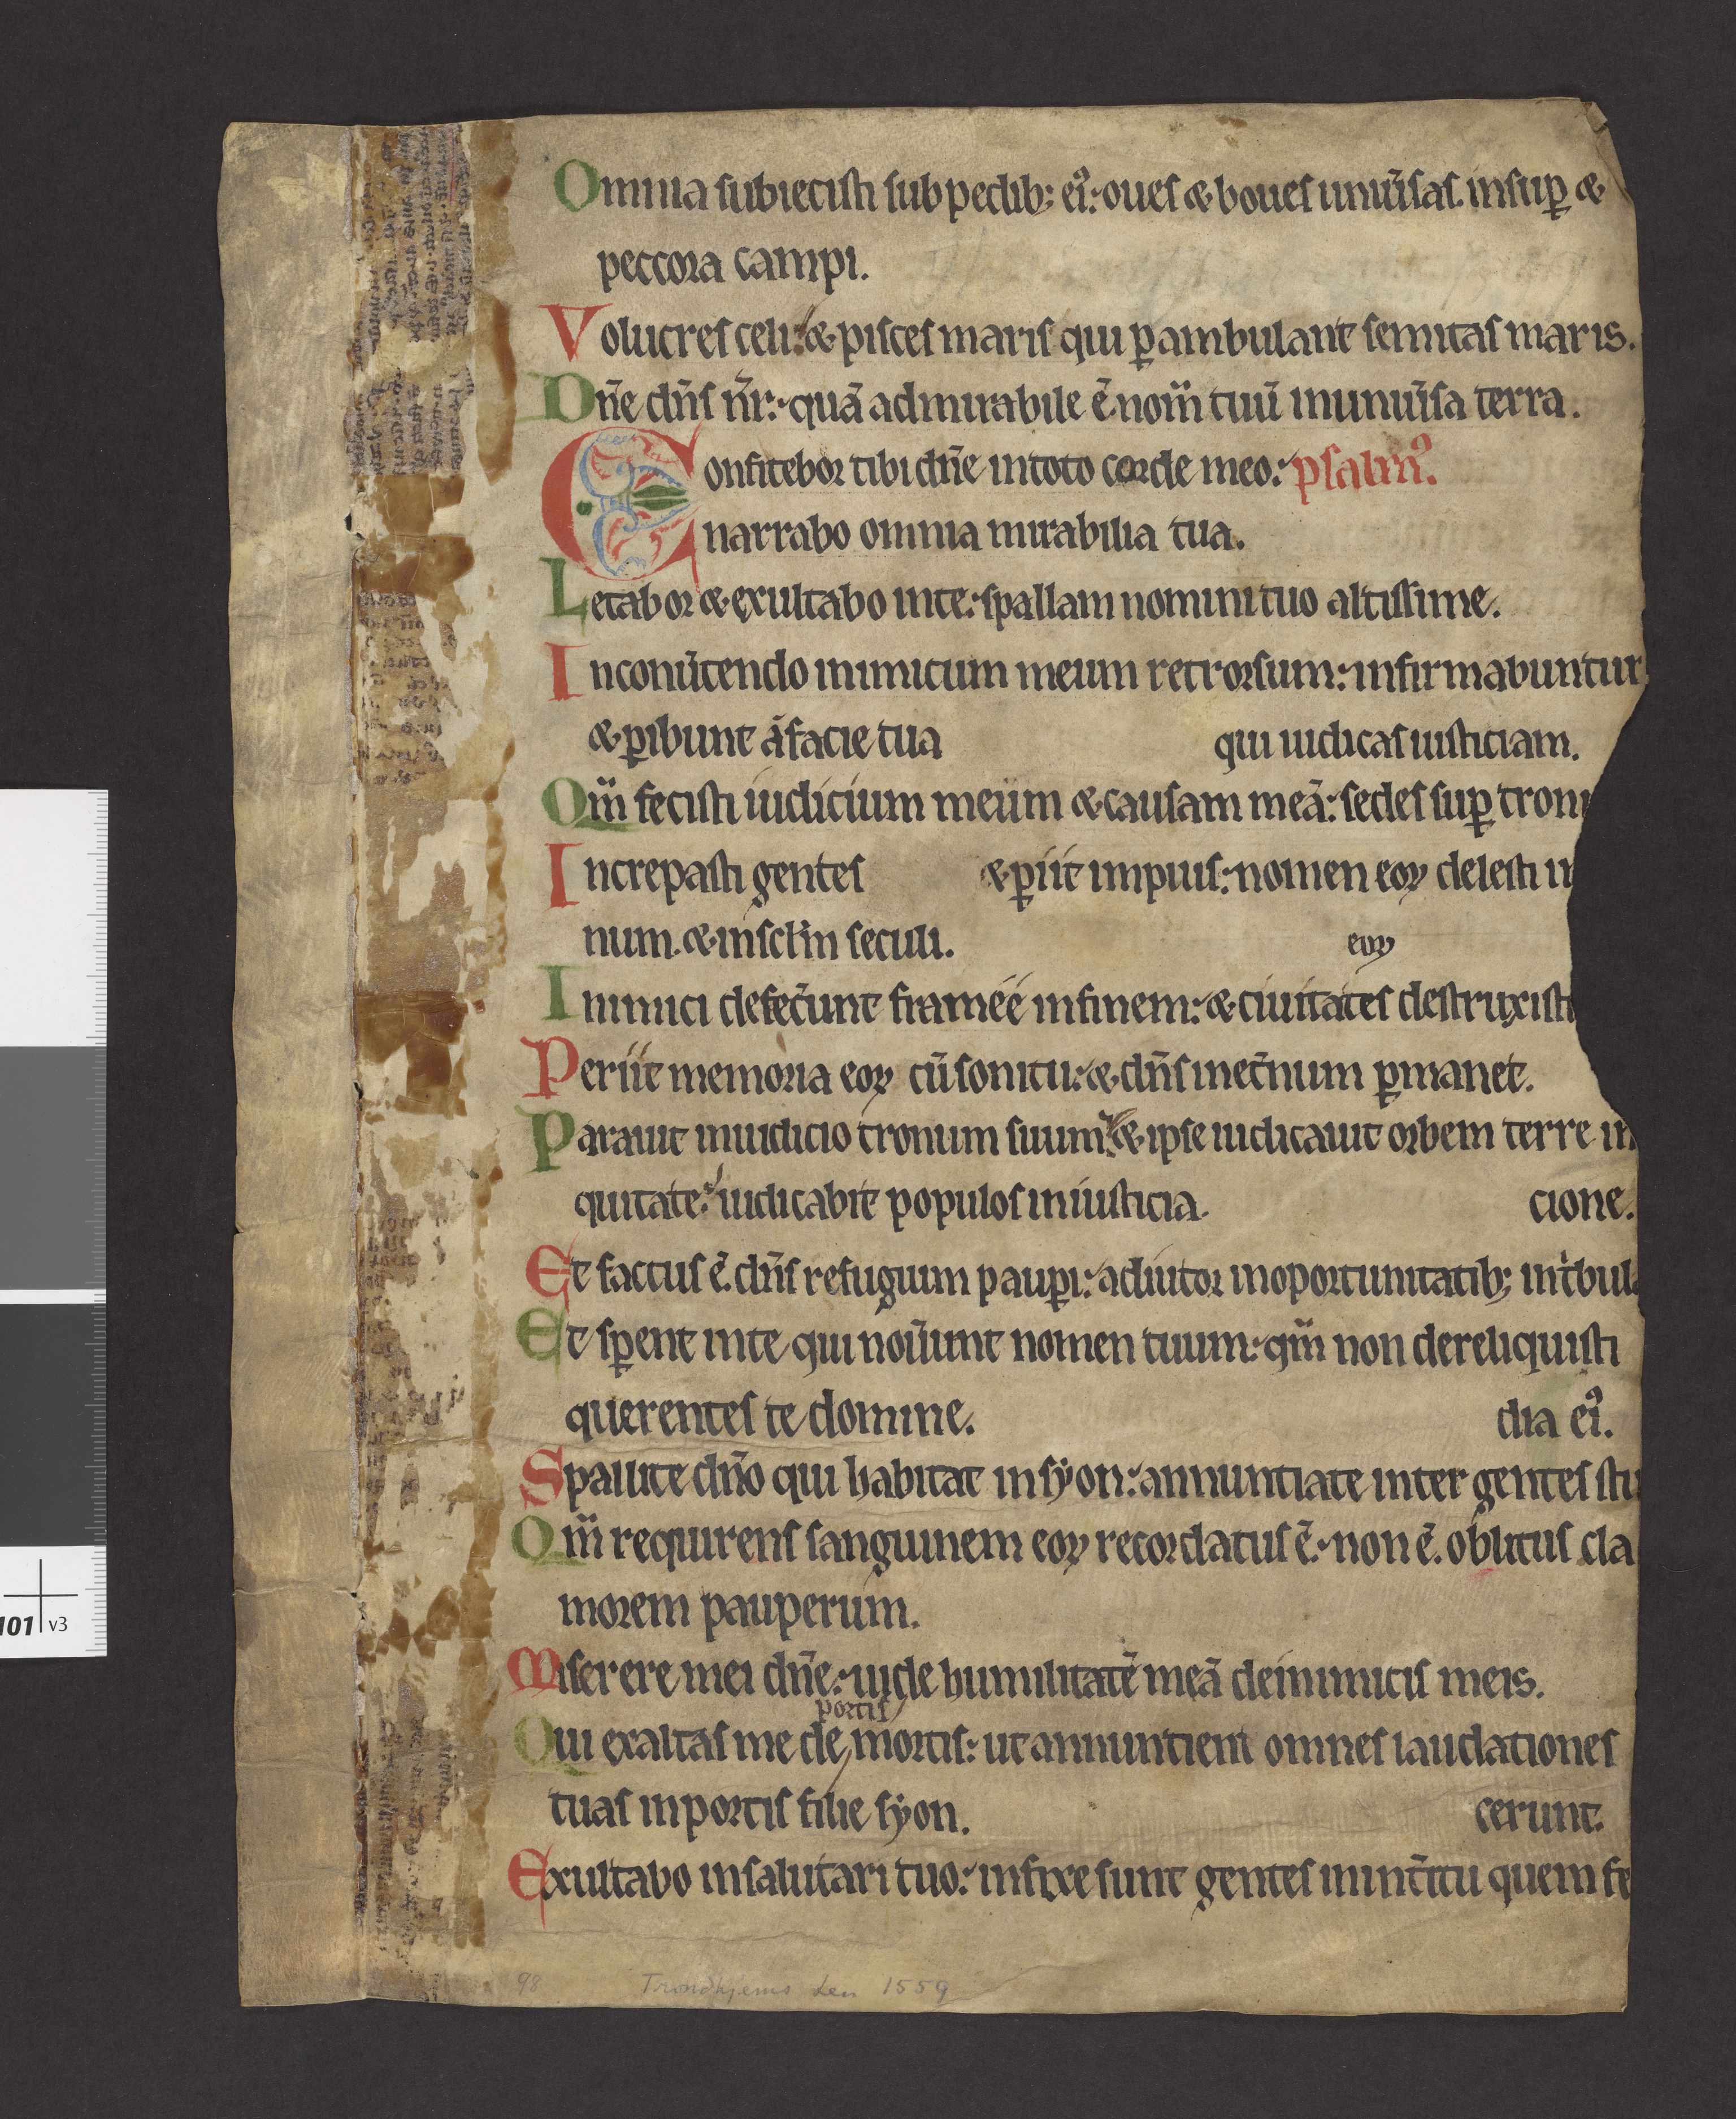 Omnia subiecisti sub pedib; ei᷒: oues & boues uniu͛sas. insup̱ &
peccora campi.
Volucres celi: & pisces maris qui p̱ambulant semitas maris.
Dn̄e dn̄s nr̄: quā admirabile ē nom̄ tuū inuniu͛sa terra.
Confitebor tibi dn̄e intoto corde meo: psalm᷒.
narrabo omnia mirabilia tua.
Letabor & exultabo inte: spallam nomini tuo altissime.
Inconu͛tendo inimicum meum retrorsum: infirmabuntur
& p̱ibunt á facie tua qui iudicas iusticiam.
Qm̄ fecisti iudicium meum & causam meā: sedes sup̱ tron
Increpasti gentes & p̱iit impius: nomen eoꝝ delesti in
num. & insclm̄ seculi. eoꝝ
Inimici defec͛unt framéé infinem: & ciuitates destruxisti
Periit memoria eoꝝ cū sonitu: & dn̄s inet͛num p̱manet.
Parauit iniudicio tronum suum: & ipse iudicauit orbem terre in
quitate: iudicabit populos iniusticia. cione.
Et factus ē. dn̄s refugium paup̱i: adiutor inoportunitatib; int͛bula
Et sp̱ent inte qui nou͛unt nomen tuum: qm̄ non dereliquisti
querentes te domine. dia ei᷒.
Spallite dn̄o qui habitat in sẏon: annuntiate inter gentes stu
Qm̄ requirens sanguinem eoꝝ recordatus ē: non ē. oblitus cla
morem pauperum.
Miserere mei dn̄e: uide humilitatē meā deinimicis meis.
portis
Qui exaltas me de mortis: ut annuntiem omnes laudationes
tuas inportis filie sẏon. cerunt.
Exultabo insalutari tuo: infixe sunt gentes inint͛itu quem fe
98 Trondhjems Len 1559
101 v3